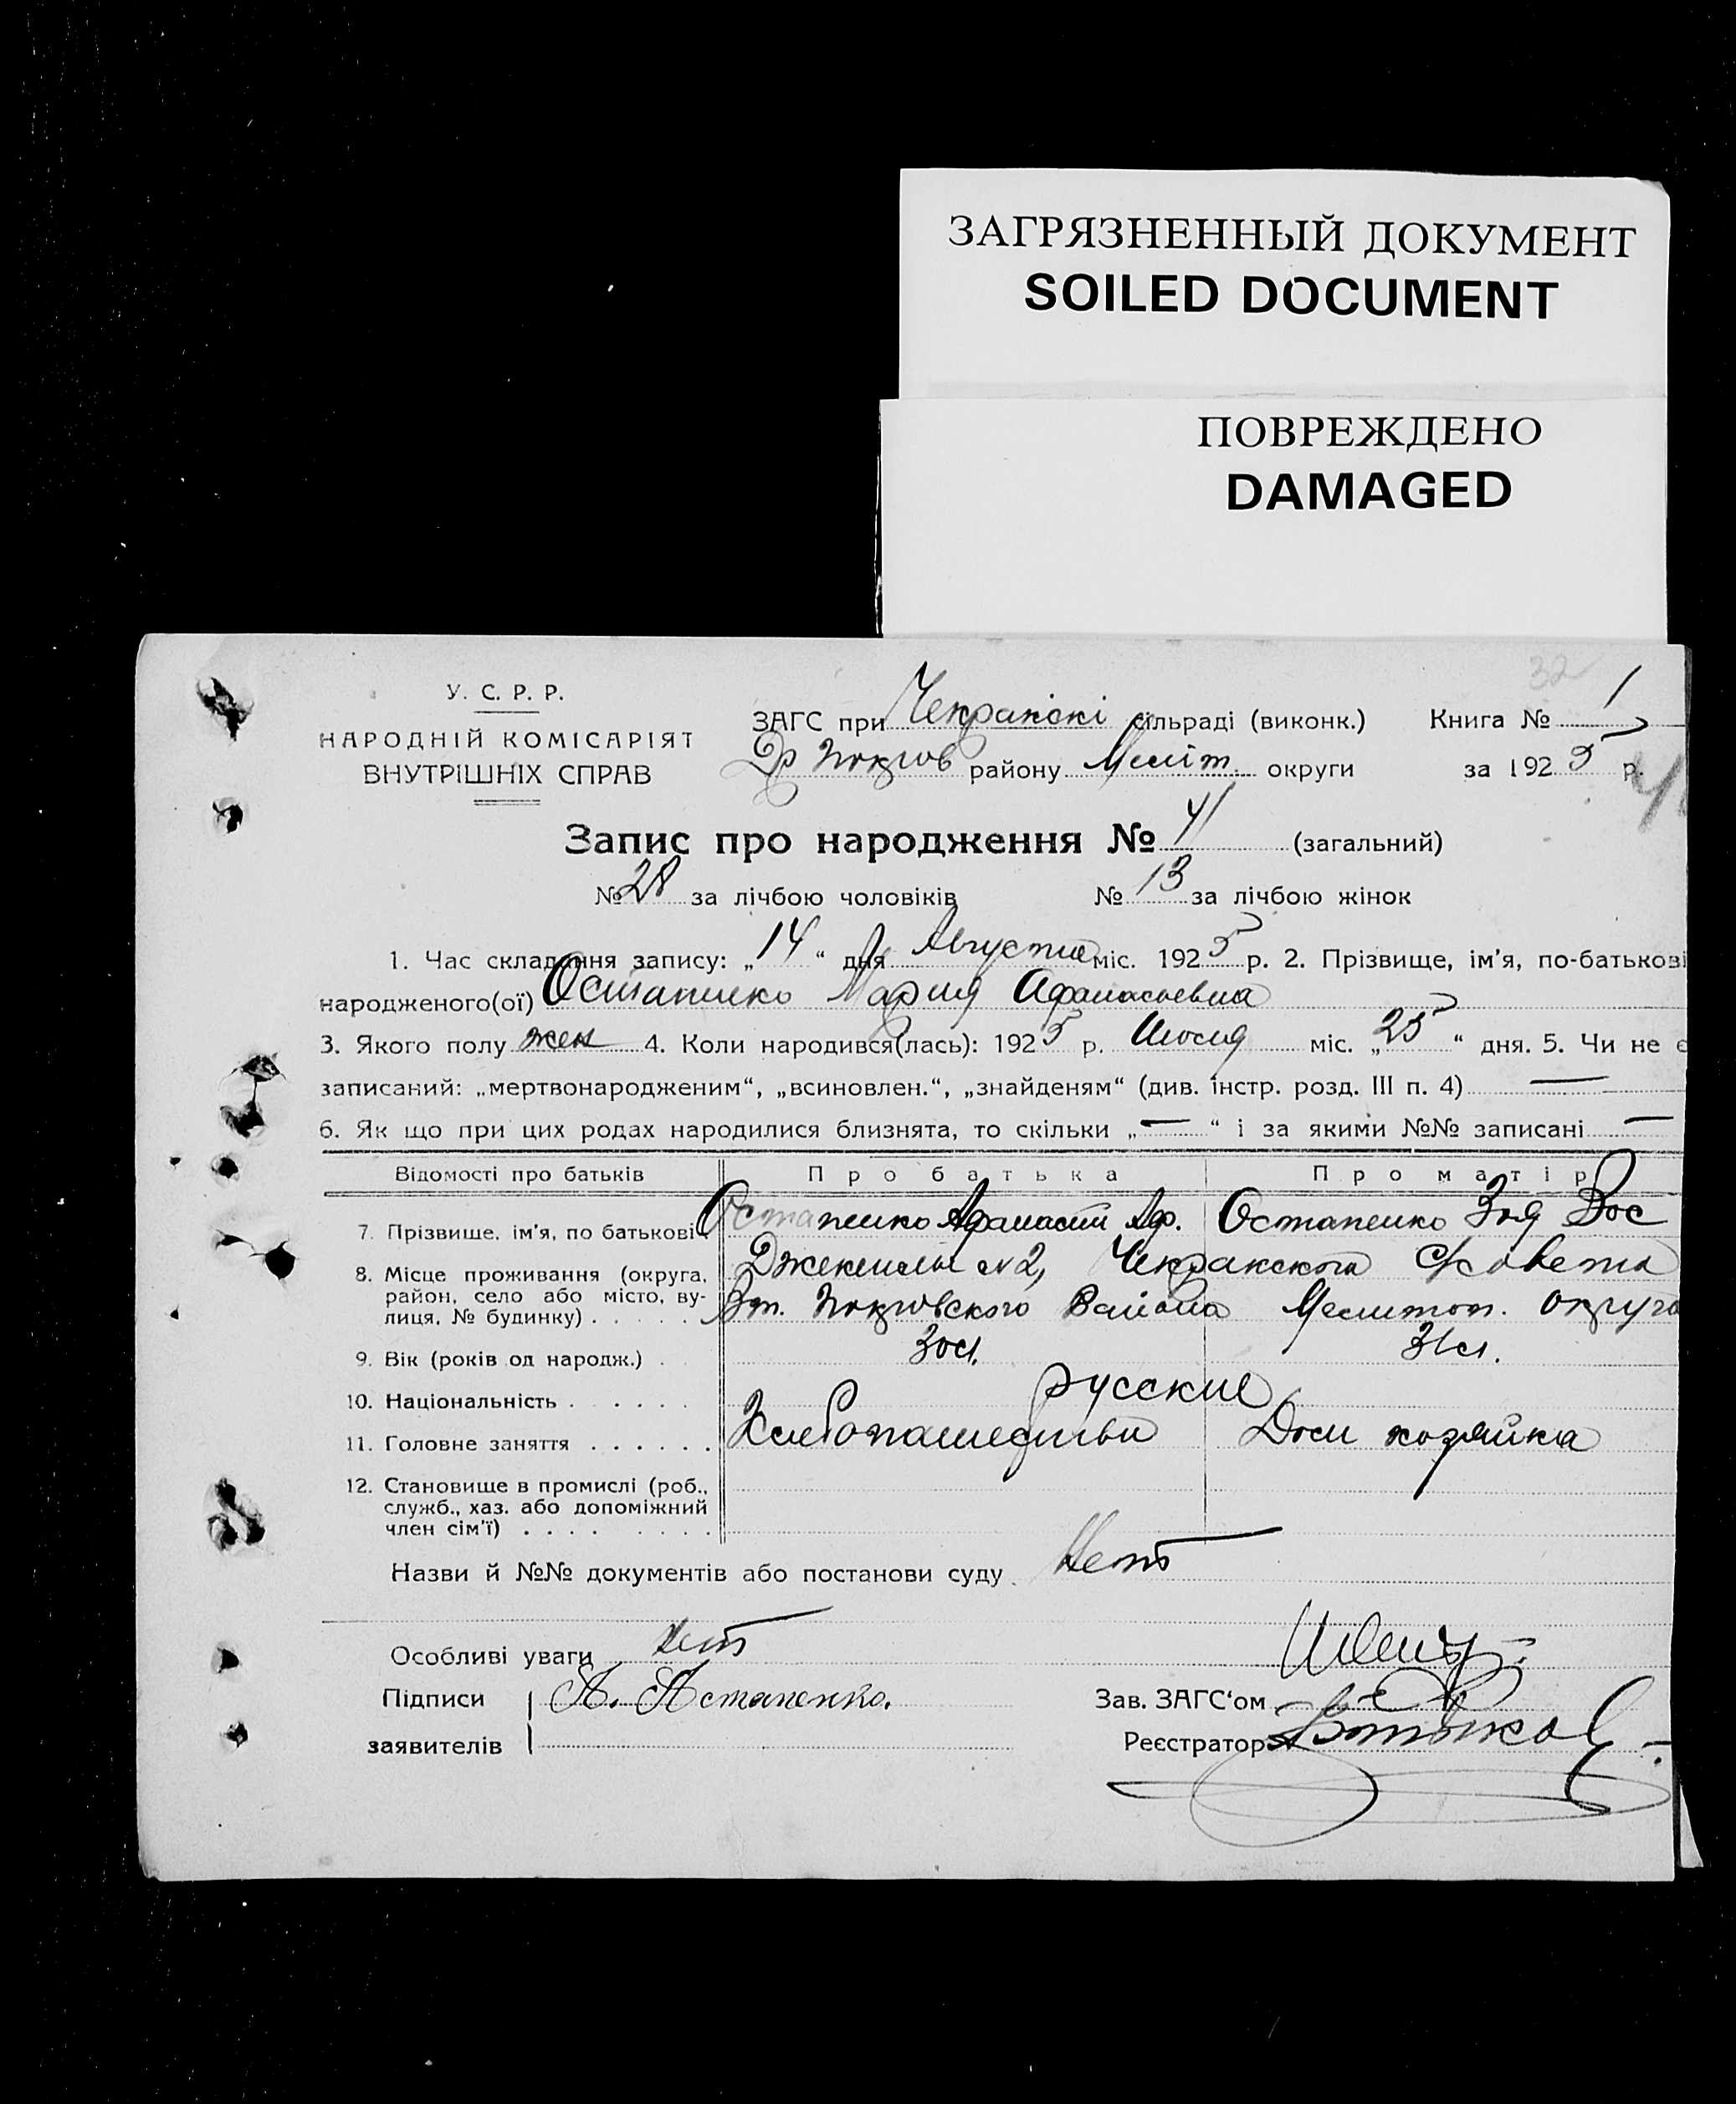 ЗАГРЯЗНЕННЫЙ ДОКУМЕНТ
SOILED DOCUMENT
ПОВРЕЖДЕНО
DAMAGED
32
У. С. Р. Р.
НАРОДНІЙ КОМІСАРІЯТ
ВНУТРІШНІХ СПРАВ
ЗАГС при Чекракскі сільраді (виконк.) Книга № 1
районy Меліт. округи за 1925 р.
Запис про народження № 41 (загальний)
№ 28 за лічбою чоловіків № 13 за лічбою жінок
1. Час складання запису: „14“ дня Августа міс. 1925 р. 2. Прізвище, ім'я, по-батькові
народженого(ої) Остапенко Мария Афанасьевна
3. Якого полу жен 4. Коли народився(лась): 1925 р. Июля міс. „25“ дня. 5. Чи не є
записаний: „мертвонародженим“, „всиновлен.“, „знайденям“ (див. інстр. розд. III п. 4) —
6. Як що при цих родах народилися близнята, то скільки „—“ і за якими №№ записані —
Відомості про батьків Про батька Про матір
7. Прізвище, ім'я, по батькові Остапенко Афанасий Аф. Остапенко Зоя
8. Місце проживання (округа, район, село або місто, вулиця, № будинку) . . . . . №2, Чекракского Совета
Покровского Района Мелитоп. округа
9. Вік (років од народж.) . 30 л. 31 л.
10. Національність . . . . . . русские
11. Головне заняття . . . . . . Хлебопашество Дом хозяйка
12. Становище в промислі (роб.,
служб., хаз. або допоміжний
член сім'ї) . . . . . . . .
Назви й №№ документів або постанови суду Нет
Особливі уваги нет
Підписи А. Астапенко.
Зав. ЗАГС'ом
заявителів Реєстратор